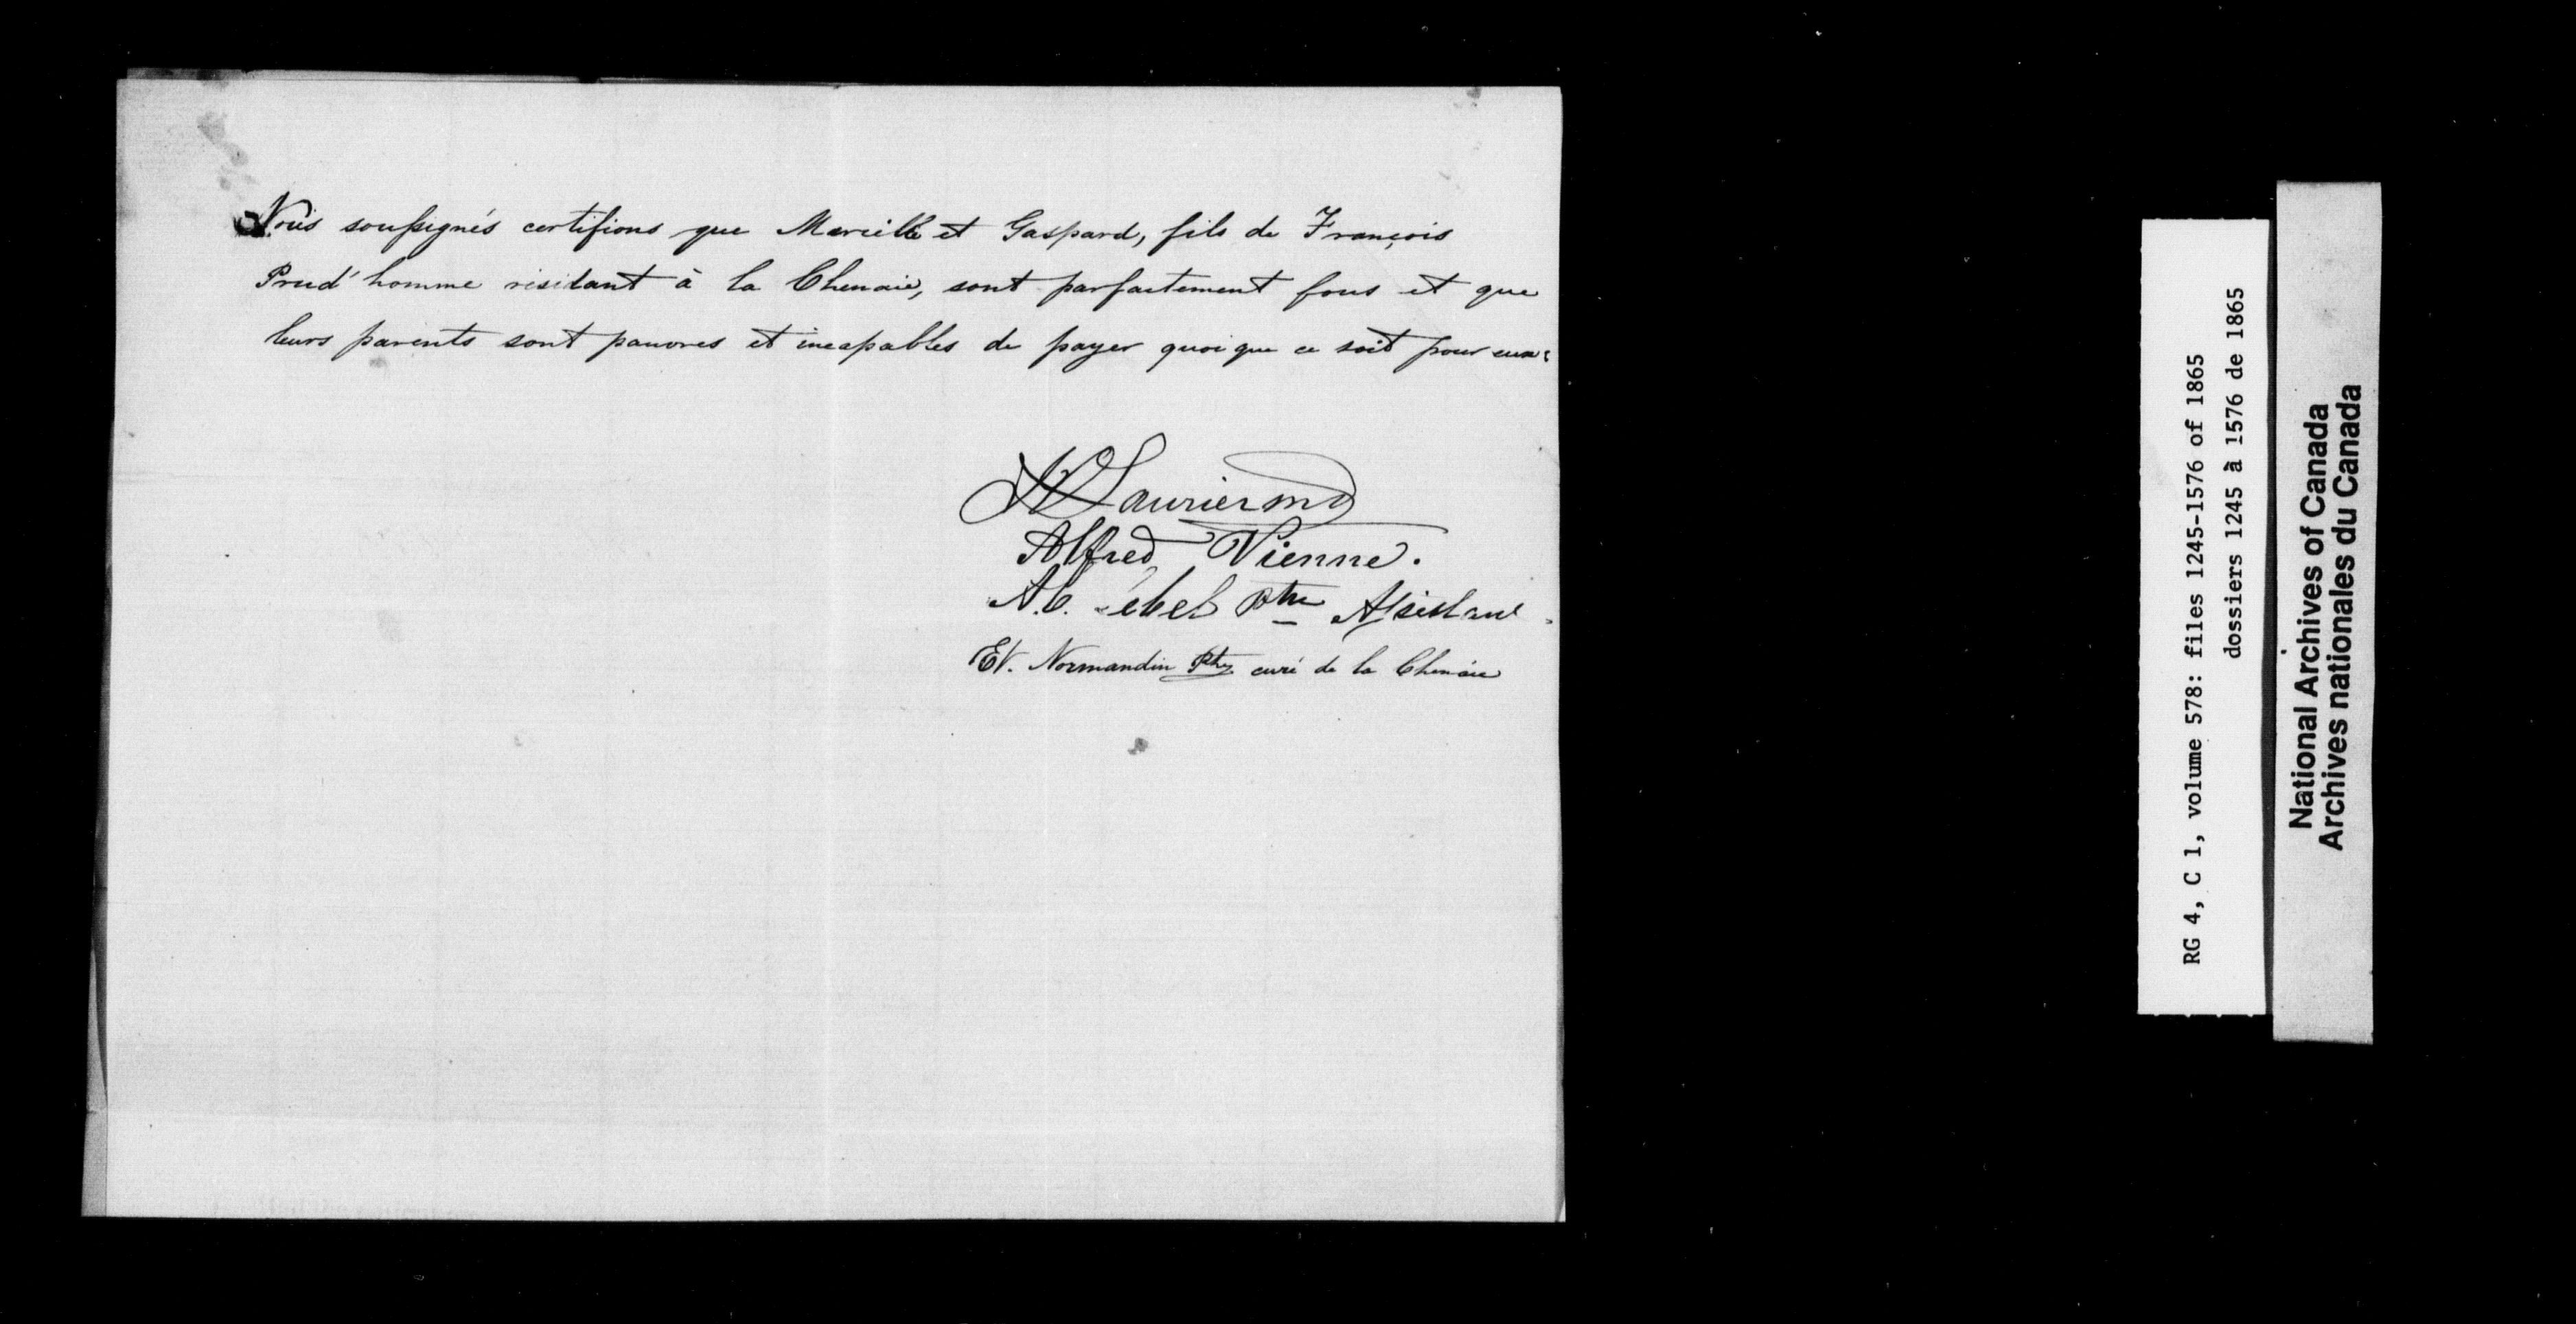 Nous soussignés certifions que Marcille et Gaspard, fils de François
Prud'homme résidant à la Chenaie, sont parfaitement fous et que
leurs parents sont pauvres et incapables de payer quoi que ce soit pour eux.
Laurier md
Alfred Vienne.
A.C. Ptre Assistant.
Et. Normandin Ptre curé de la Chenaie
RG 4, C 1, volume 578: files 1245-1576 of 1865
dossiers 1245 à 1576 de 1865
National Archives of Canada
Archives nationales du Canada